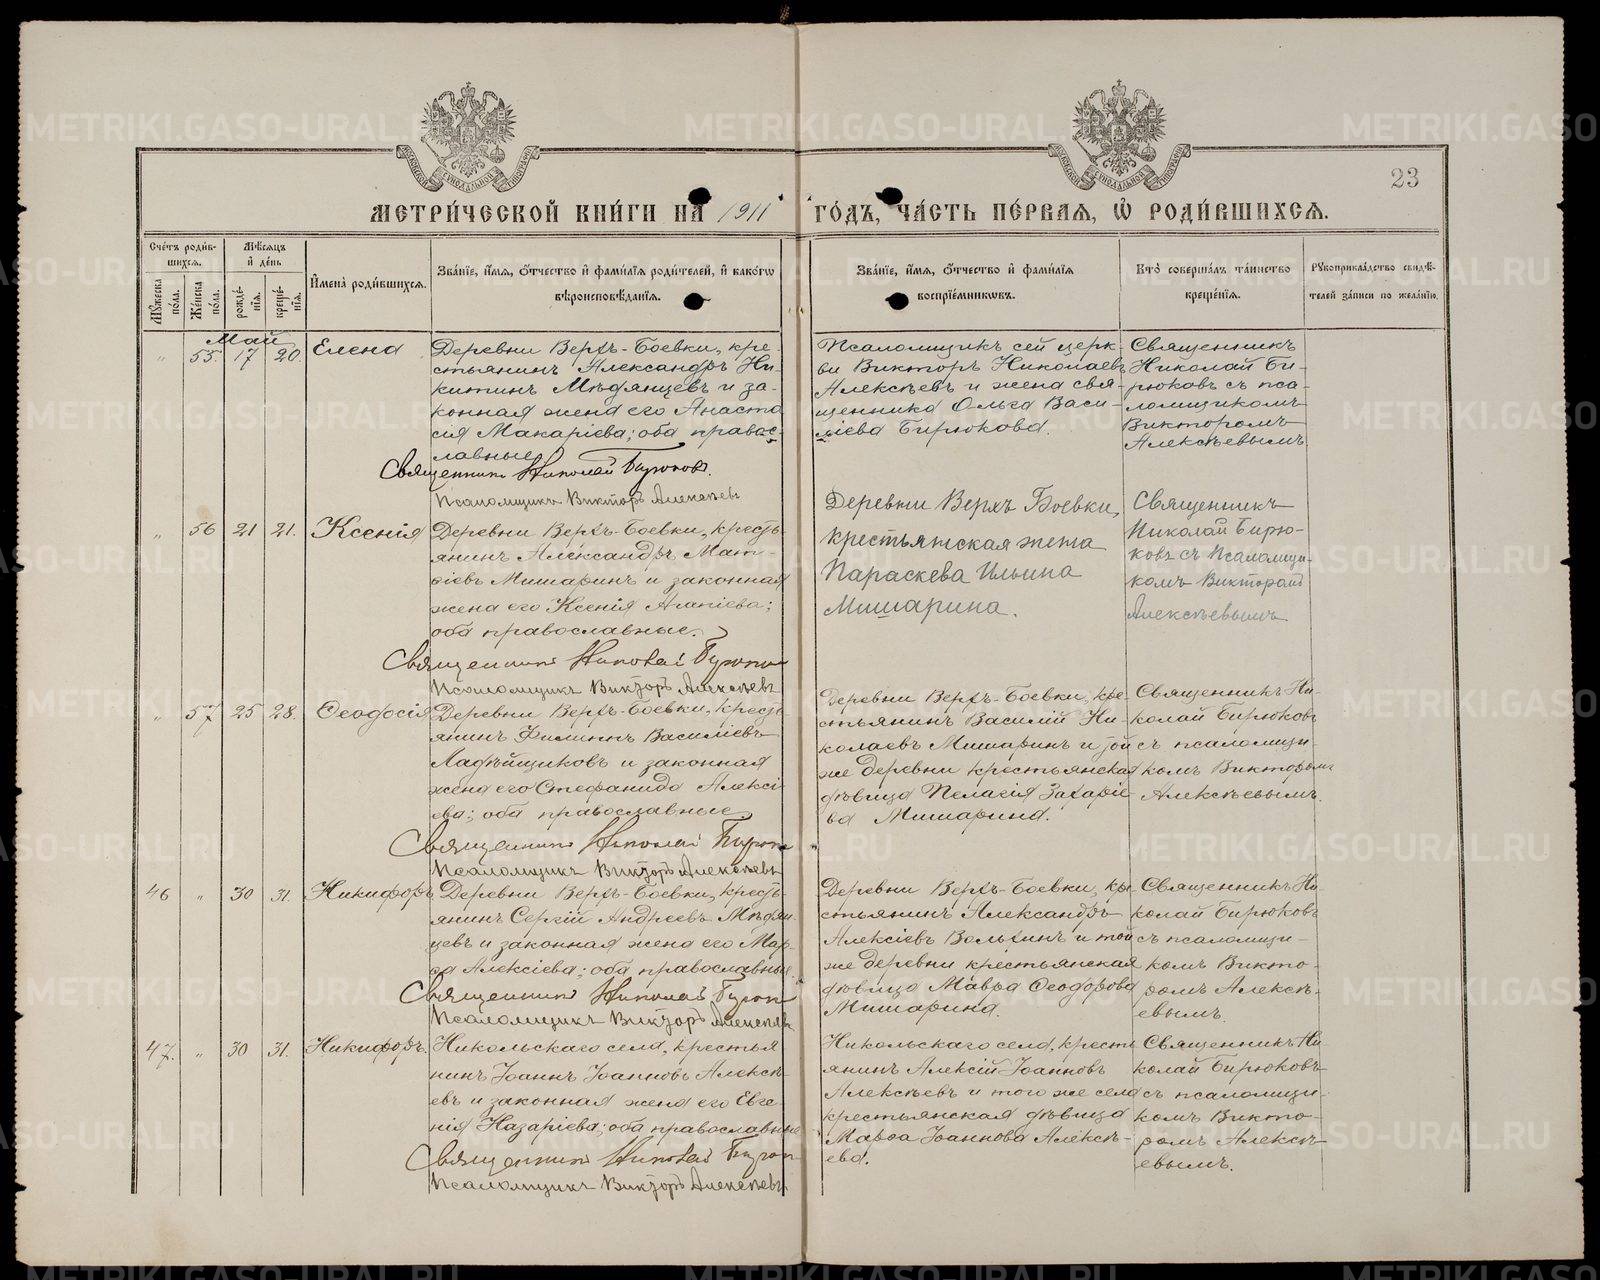 23
МЕТРИ́ЧЕСКОЙ КНИ́ГИ НА 1911 ГО́ДЪ, ЧА́СТЬ ПЕ́РВАЯ, Ѡ РОДИ́ВШИХСЯ.
Сче́тъ роди́вшихся.
Мꙋ́жеска по́ла.
Же́нска по́ла.
Мѣ́сяцъ и҆ де́нь
рожде́нїя.
креще́нїя.
И҆мена̀ роди́вшихся.
Зва́нїе, и҆́мя, ѻ҆́тчество и҆ фами́лїя роди́телей, и҆ како́гѡ
вѣроисповѣ́данїя.
Зва́нїе, и҆́мя, ѻ҆́тчество и҆ фами́лїя
воспрїе́мникѡвъ.
Кто̀ соверша́лъ та́инство
креще́нїя.
Рꙋкоприкла́дство свидѣ́-
телей за́писи по жела́нїю.
Май
„ 55. 17 20. Елена
Деревни Верхъ-Боевки, кре-
стьянинъ Александръ Ни-
китинъ Мѣдянцевъ и за-
конная жена его Анаста
сія Макаріева; оба правос-
лавные
Священникъ Николай Бирюковъ.
Псаломщикъ Викторъ Алексѣевъ
Псаломщикъ сей церк-
ви Викторъ Николаевъ
Алексѣевъ и жена свя-
щенника Ольга Васи-
ліева Бирюкова.
Священникъ
Николай Би-
рюковъ съ пса-
ломщикомъ
Викторомъ
Алексѣевымъ
„ 56 21 21. Ксенія
Деревни Верхъ-Боевки, кресть-
янинъ Александръ Мат-
ѳіевъ Мишаринъ и законная
жена его Ксенія Агапіева;
оба православные.
Священникъ Николай Бирюков
Псаломщикъ Викторъ Алексѣевъ
Деревни Верхъ Боевки,
крестьянская жена
Параскева Ильина
Мишарина.
Священникъ
Николай Бирю-
ковъ съ Псаломщи-
комъ Викторомъ
Алексѣевымъ
„ 57 25 28. Ѳеодосія
Деревни Верхъ-Боевки, кресть-
янинъ Филиппъ Василіевъ
Ладѣйщиковъ и законная
жена его Стефанида Алексі-
ева; оба православные
Священникъ Николай Бирюк
Псаломщикъ Викторъ Алексѣевъ
Деревни Верхъ-Боевки, кре-
стьянинъ Василій Ни-
колаевъ Мишаринъ и той
же деревни крестьянская
дѣвица Пелагія Захаріе
ва Мишарина.
Священникъ Ни-
колай Бирюковъ
съ псаломщи-
комъ Викторомъ
Алексѣевымъ.
46 „ 30 31. Никифоръ
Деревни Верхъ-Боевки, кресть-
янинъ Сергій Андреевъ Мѣдян-
цевъ и законная жена его Мар-
ѳа Алексіева; оба православные.
Священникъ Николай Бирюк
Псаломщикъ Викторъ Алексѣев
Деревни Верхъ-Боевки, кре
стьянинъ Александръ
Алексіевъ Вольхинъ и той
же деревни крестьянская
дѣвица Мавра Ѳеодорова
Мишарина.
Священникъ Ни-
колай Бирюковъ
съ псаломщи-
комъ Викто-
ромъ Алексѣ-
евымъ.
47. „ 30 31. Никифоръ.
Никольскаго села, крестья
нинъ Іоаннъ Іоанновъ Алексѣ-
евъ и законная жена его Евге-
нія Назаріева; оба православные
Священникъ Николай Бирюк
Псаломщикъ Викторъ Алексѣевъ
Никольскаго села, кресть
янинъ Алексій Іоанновъ
Алексѣевъ и того же села
крестьянская дѣвица
Марѳа Іоаннова Алексѣ-
ева.
Священникъ Ни
колай Бирюковъ
съ псаломщи-
комъ Викто-
ромъ Алексѣ-
евымъ.
METRIKI.GASO-URAL.RU